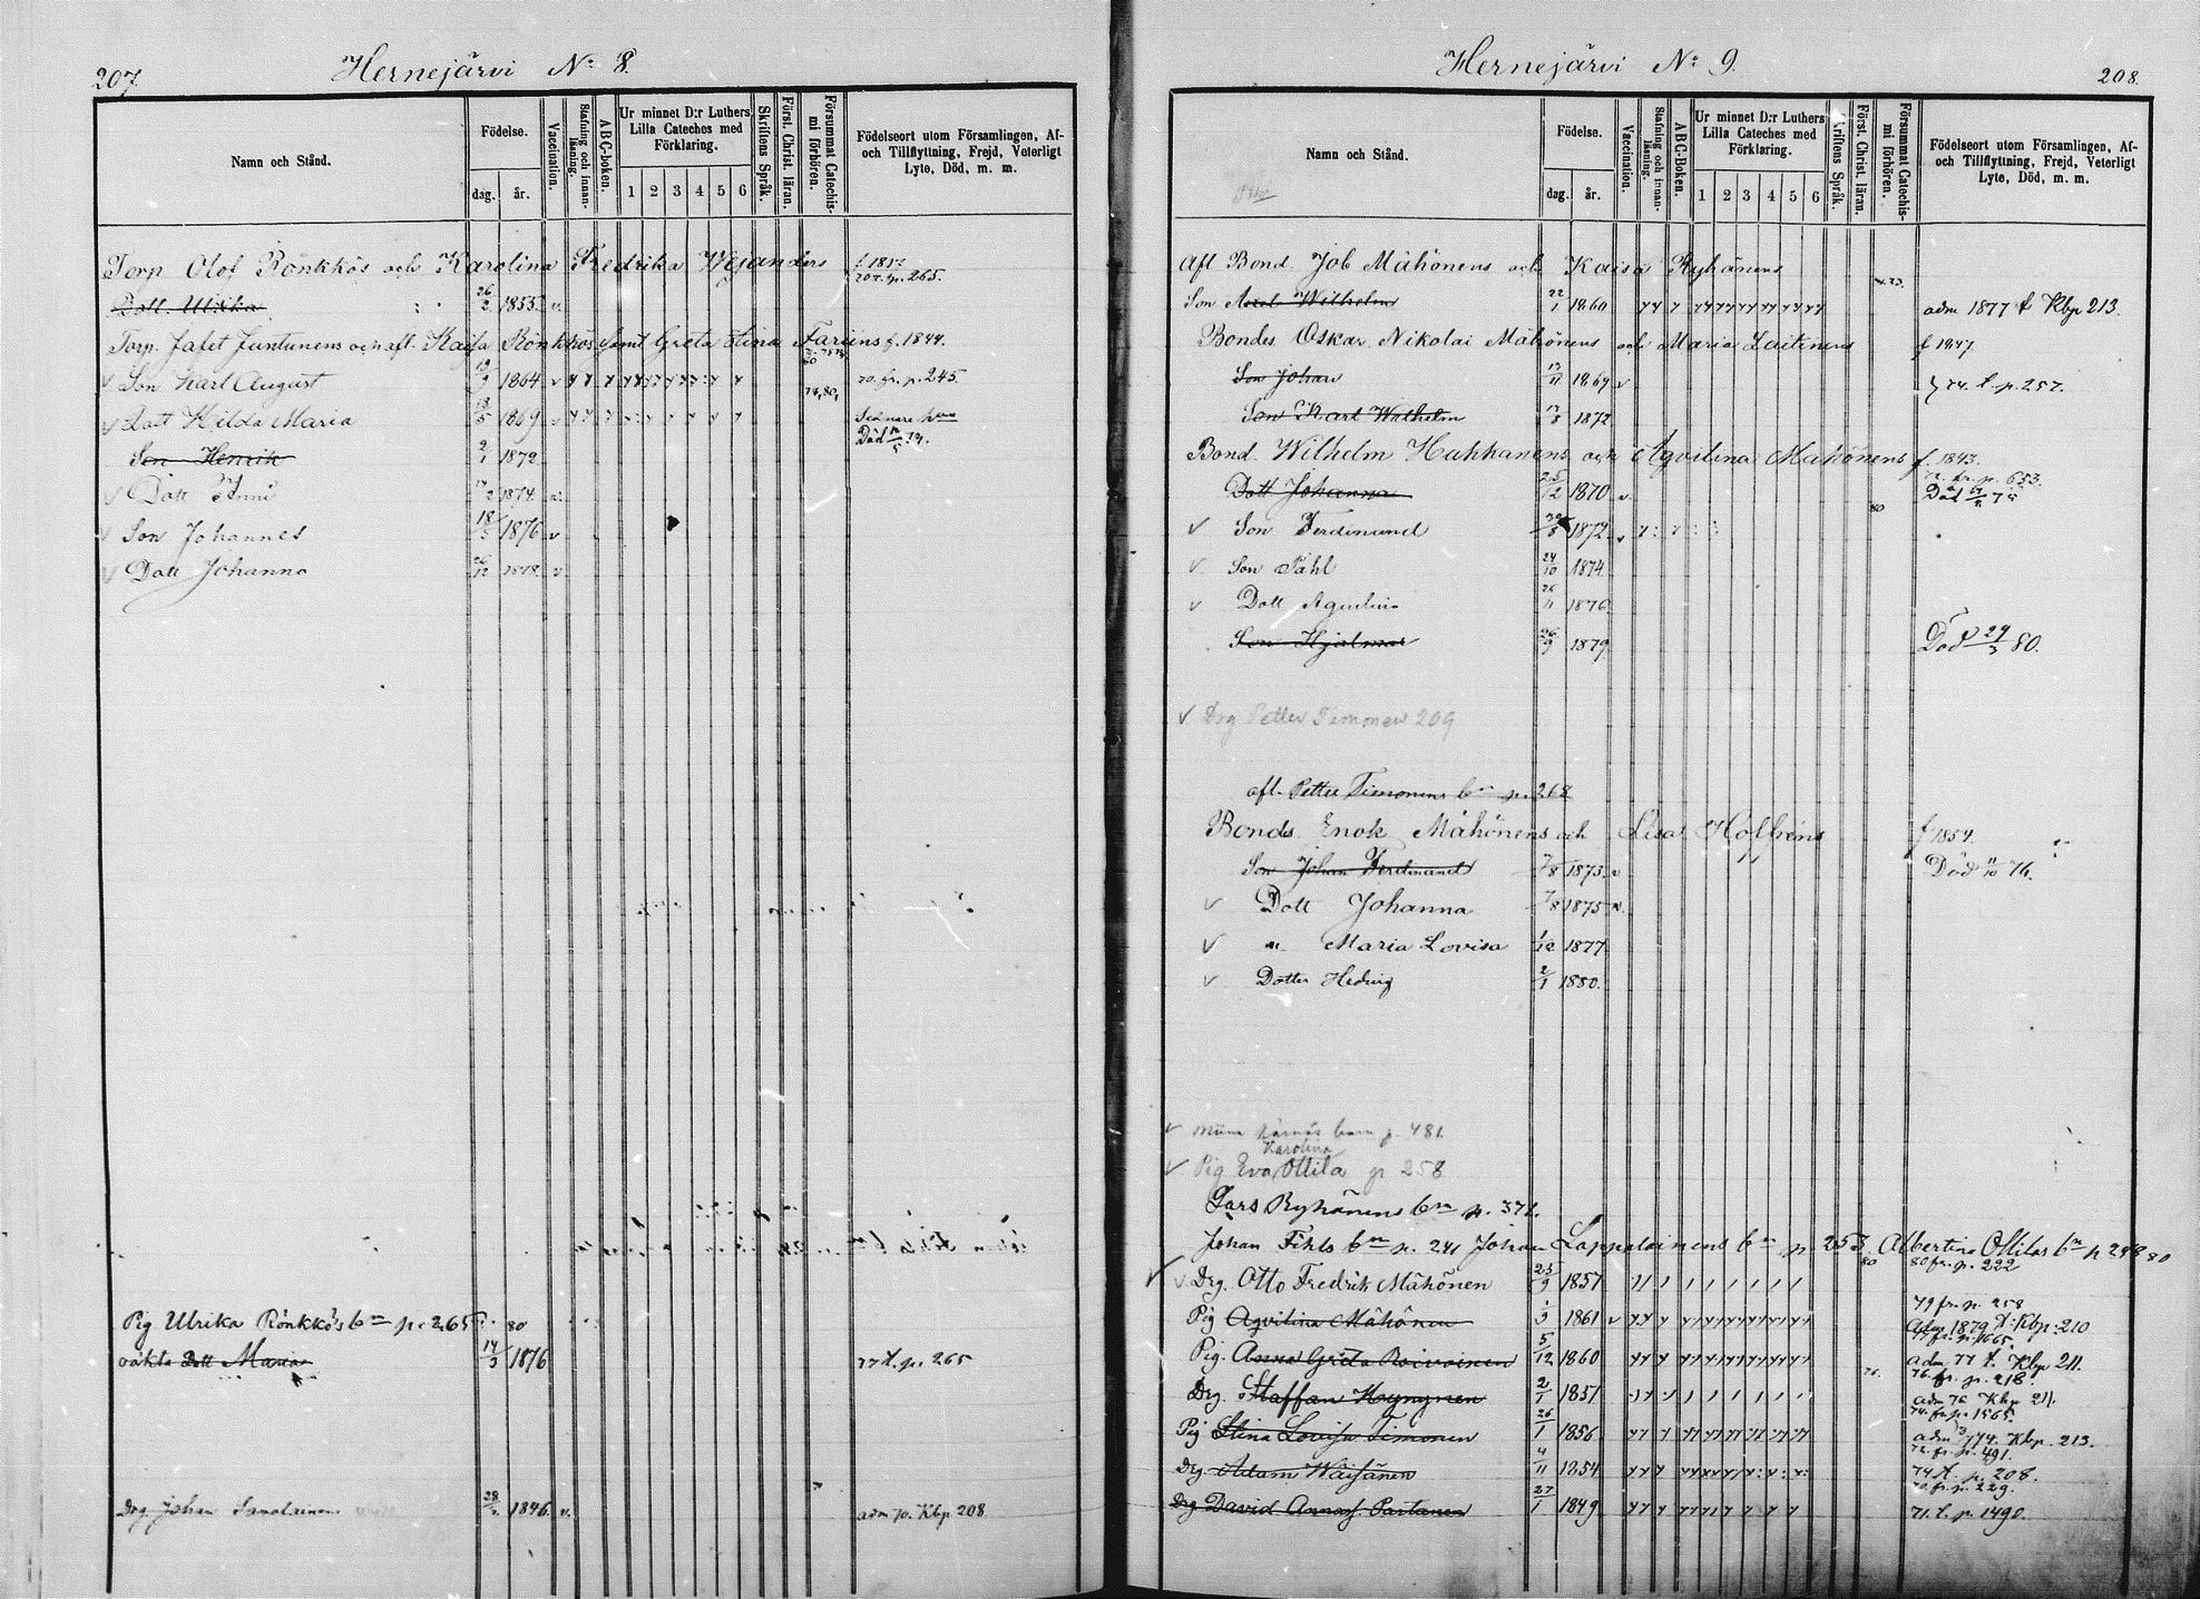 207.
Hernejärvi No 8.
Namn och Stånd.
Födelse.
dag. år.
Vaccination.
Stafning och innanläsning.
ABC-boken.
Ur minnet D:r Luthers Lilla Cateches med Förklaring.
1 2 3 4 5 6
Skriftens Språk.
Först. Christ. läran.
Försummat Catechismi förhören.
Födelseort utom Församlingen, Af- och Tillflyttning, Frejd, Veterligt Lyte, Död, m. m.
Torp Olof Rönkkös och Karolina Fredrika Wejanders
70 t. p. 265.
Dott. Ulrika 26/2 1855. v
Torp. Jafet Juntunens och afl. Kajsa Rönkkös samt Greta Stina Fariins f. 1844.
v Son Karl August 1864 v 70. fr. p. 245.
v Dott Hilda Maria 18/5 1869 v
Son Henrik 2/1 1872
v Dott Anni 1874 v
v Son Johannes 18/5 1876 v
v Dott Johanna 26/12 1878. v
Pig Ulrika Rönkkö's bn p. 265 80
Dott Maria 14/3 1876 77 t. p. 265
Drg. Johan 1846. v. adm 70. Kbp 208
Hernejärvi No 9.
208.
Namn och Stånd.
Födelse.
dag. år.
Vaccination.
Stafning och innanläsning.
ABC-Boken.
Ur minnet D:r Luthers Lilla Cateches med Förklaring.
1 2 3 4 5 6
Skriftens Språk.
Först. Christ. läran.
Försummat Catechismi förhören.
Födelseort utom Församlingen, Af- och Tillflyttning, Frejd, Veterligt Lyte, Död, m. m.
Afl Bond. Job Mähönens och Kaisa Ryhänens
Son Wilhelm 22/1 1860 adm 1877 t Kbp 213.
Bondes Oskar Nikolai Mähönens och Maria Laitinens f 1847
Son Johan 13/11 1869 v 74. t. p. 257.
Son Karl Wilhelm 1872
Bond. Wilhelm Hukkanens och Agvilina Mähönens f. 1843.
72. fr. p. 653.
Dott Johanna 25/12 1870 v. Död
80
v Son Ferdinand 1872 v
v Son Påhl 24/10 1874
v Dott Agvilina 26/11 1876
Son Hjalmar 26/9 1879 Död 29/3 80.
v Drg Petter Timonen 209
afl. Petter Timonens bn p. 268
Bonds. Enok Mähönens och Lisa Hoffréns f 1854.
Son Johan Ferdinand 7/8 1873 v Död 11/10 76.
v Dott Johanna 7/8 1875 v.
v " Maria Lovisa 1/12 1877
v Dotter Hedvig 2/1 1880.
v barn p. 481.
Karolina
v Pig Eva Ottila p 258
Lars Ryhänens bn p. 371.
Johan Fihls bn p. 241 Johan Lappalainens bn p 253 Albertina Ottilas bn p 248 80
80 80 fr. p. 222
v Drg. Otto Fredrik Mähönen 25/9 1857
79 fr. p 258
Pig Agvilina Mähönen 1861 v adm 1879 t. Kbp. 210
77 fr. p. 1665.
Pig. Anna Greta Roivainen 5/12 1860 adm 77 t. Kbp 211.
76. fr. p. 218.
Drg. Staffan Kynynen 2/1 1851 adm 76 Kbp 211.
74. fr. p. 1565.
Pig Stina Lovisa Timonen 26/1 1856 adm 774. Kbp. 213.
72. fr. p. 491.
Drg. Adam Wäisänen 4/11 1854 74 t. p. 208.
70. fr. p. 229.
Drg David Partanen 27/1 1849 71. t. p. 1490.